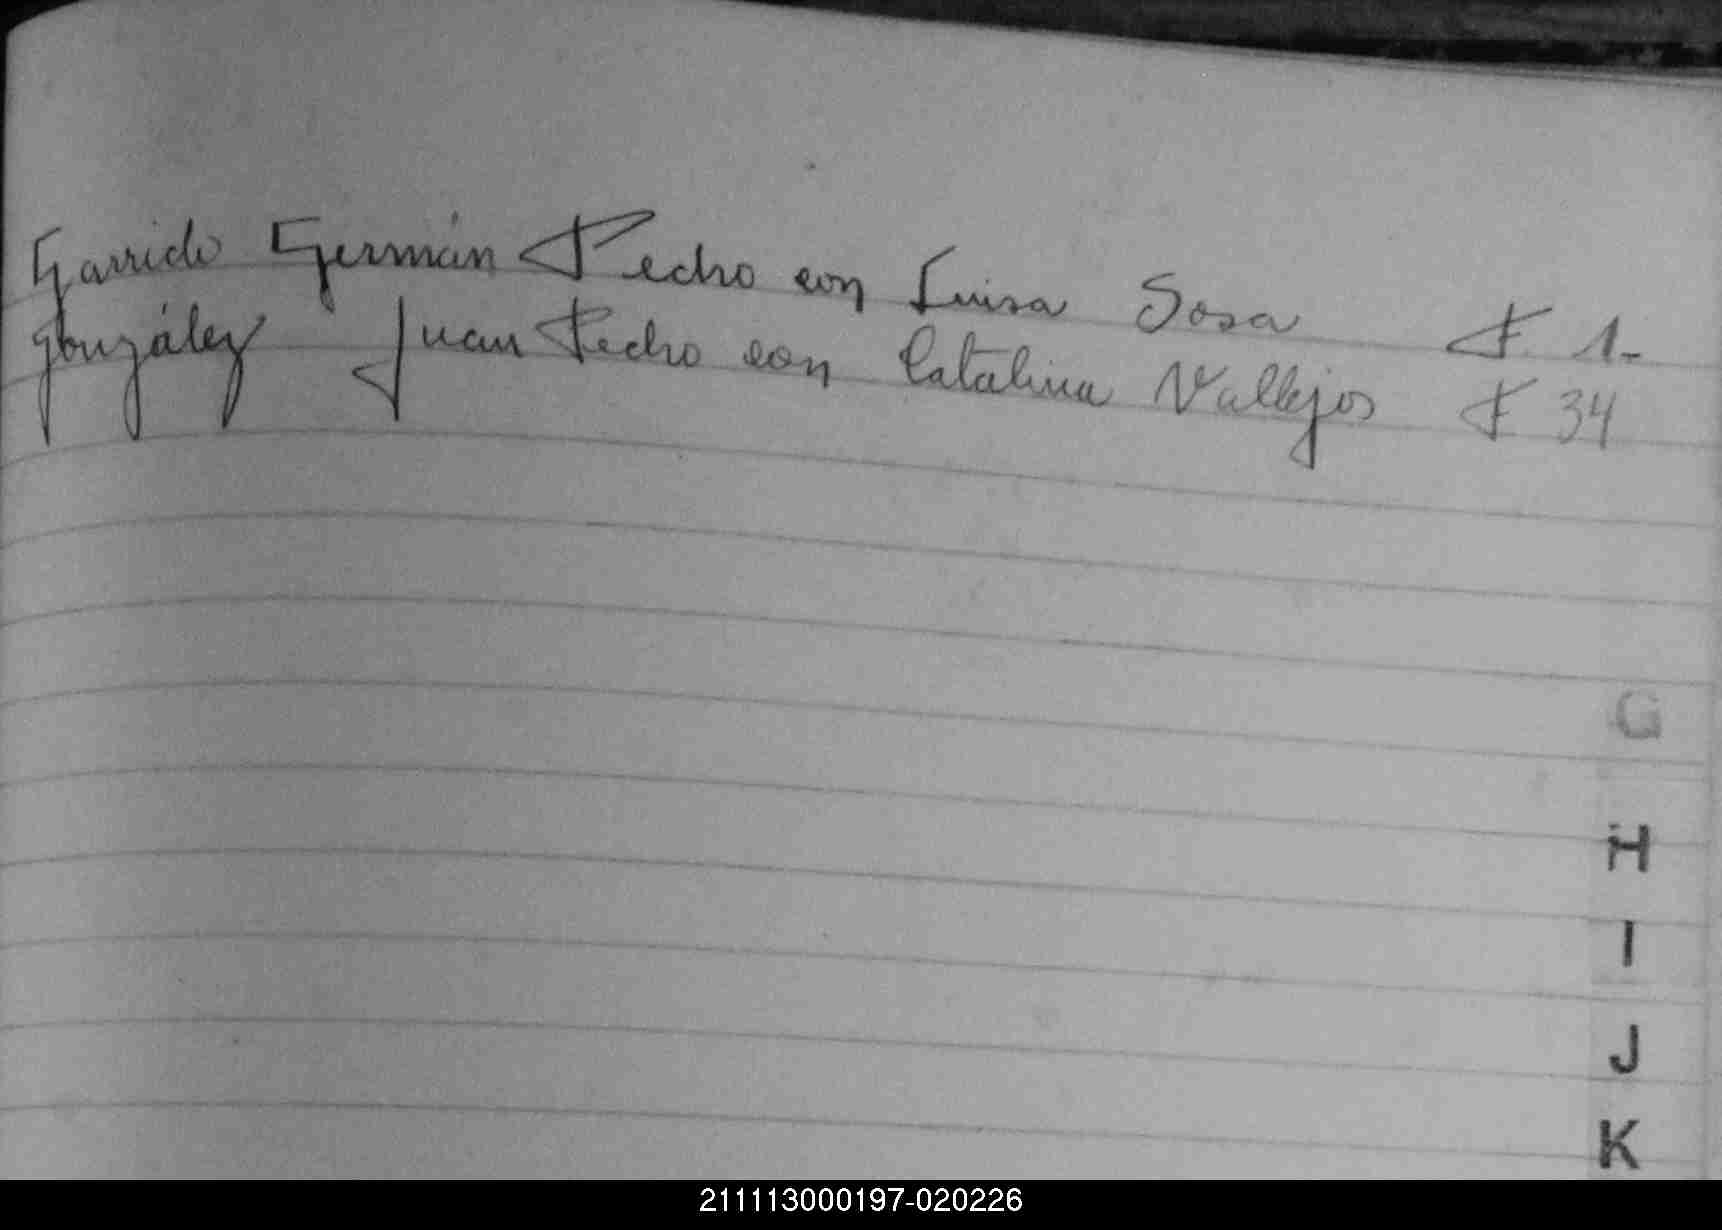 Garrido Germán Pedro con Luisa Sosa F. 1-
González Juan Pedro con Catalina Vallejos F 34
G
H
I
J
K
211113000197-020226